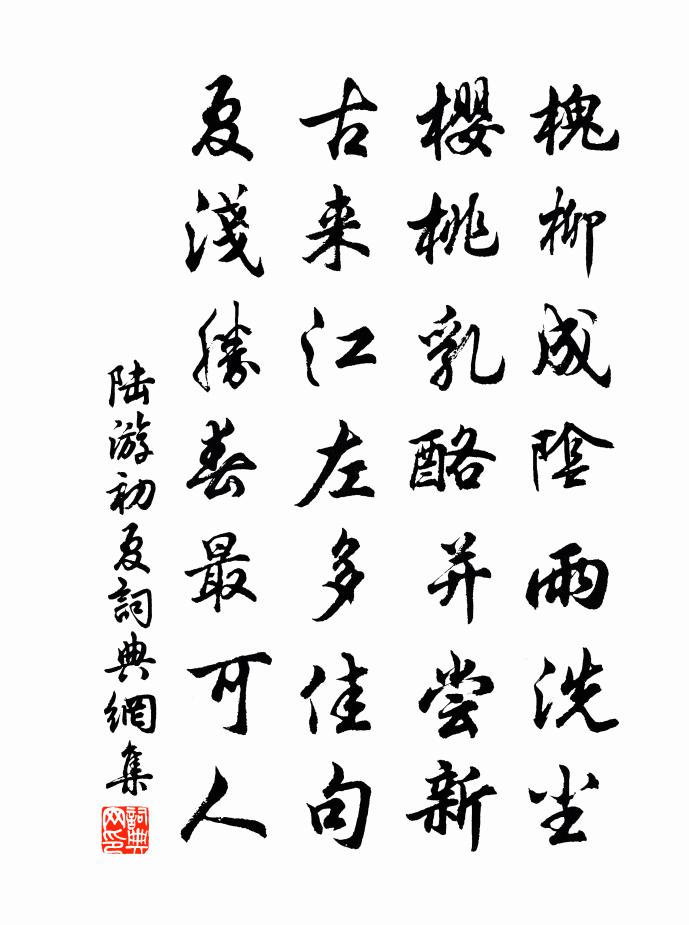 槐柳成陰雨洗尘
櫻桃乳酪并尝新
古来江左多佳句
夏淺勝春最可人
陆游初夏詞典網集
詞典网印